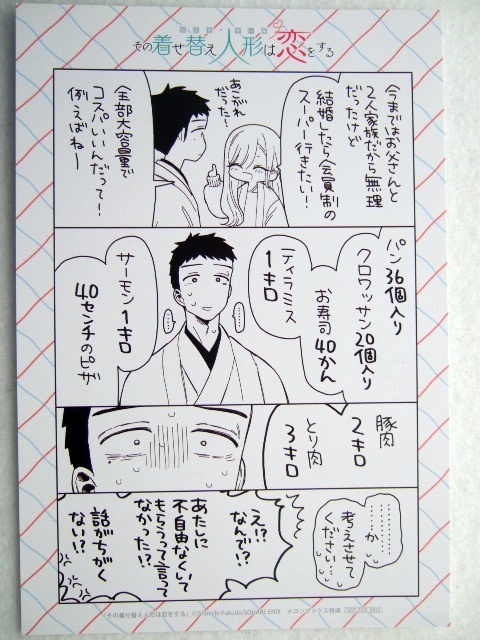 その着せ替え人形は恋をする
今まではお父さんと
2人家族だから無理
だったけど
結婚したら会員制の
スーパー行きたい!
あこがれ
だった〜!
全部大容量で
コスパいいんだって!
例えばねー
パン36個入り
クロワッサン20個入り
お寿司40かん
ティラミス
1キロ
サーモン1キロ
40センチのピザ
豚肉
2キロ
とり肉
3キロ
………か
考えさせて
ください…
え!?
なんで!?
あたしに
不自由なくいて
もらうって言って
なかった!?
話がちがく
ない!?
『その着せ替え人形は恋をする』©Shinichi Fukuda/SQUARE ENIX メロンブックス特典 NOT FOR SALE